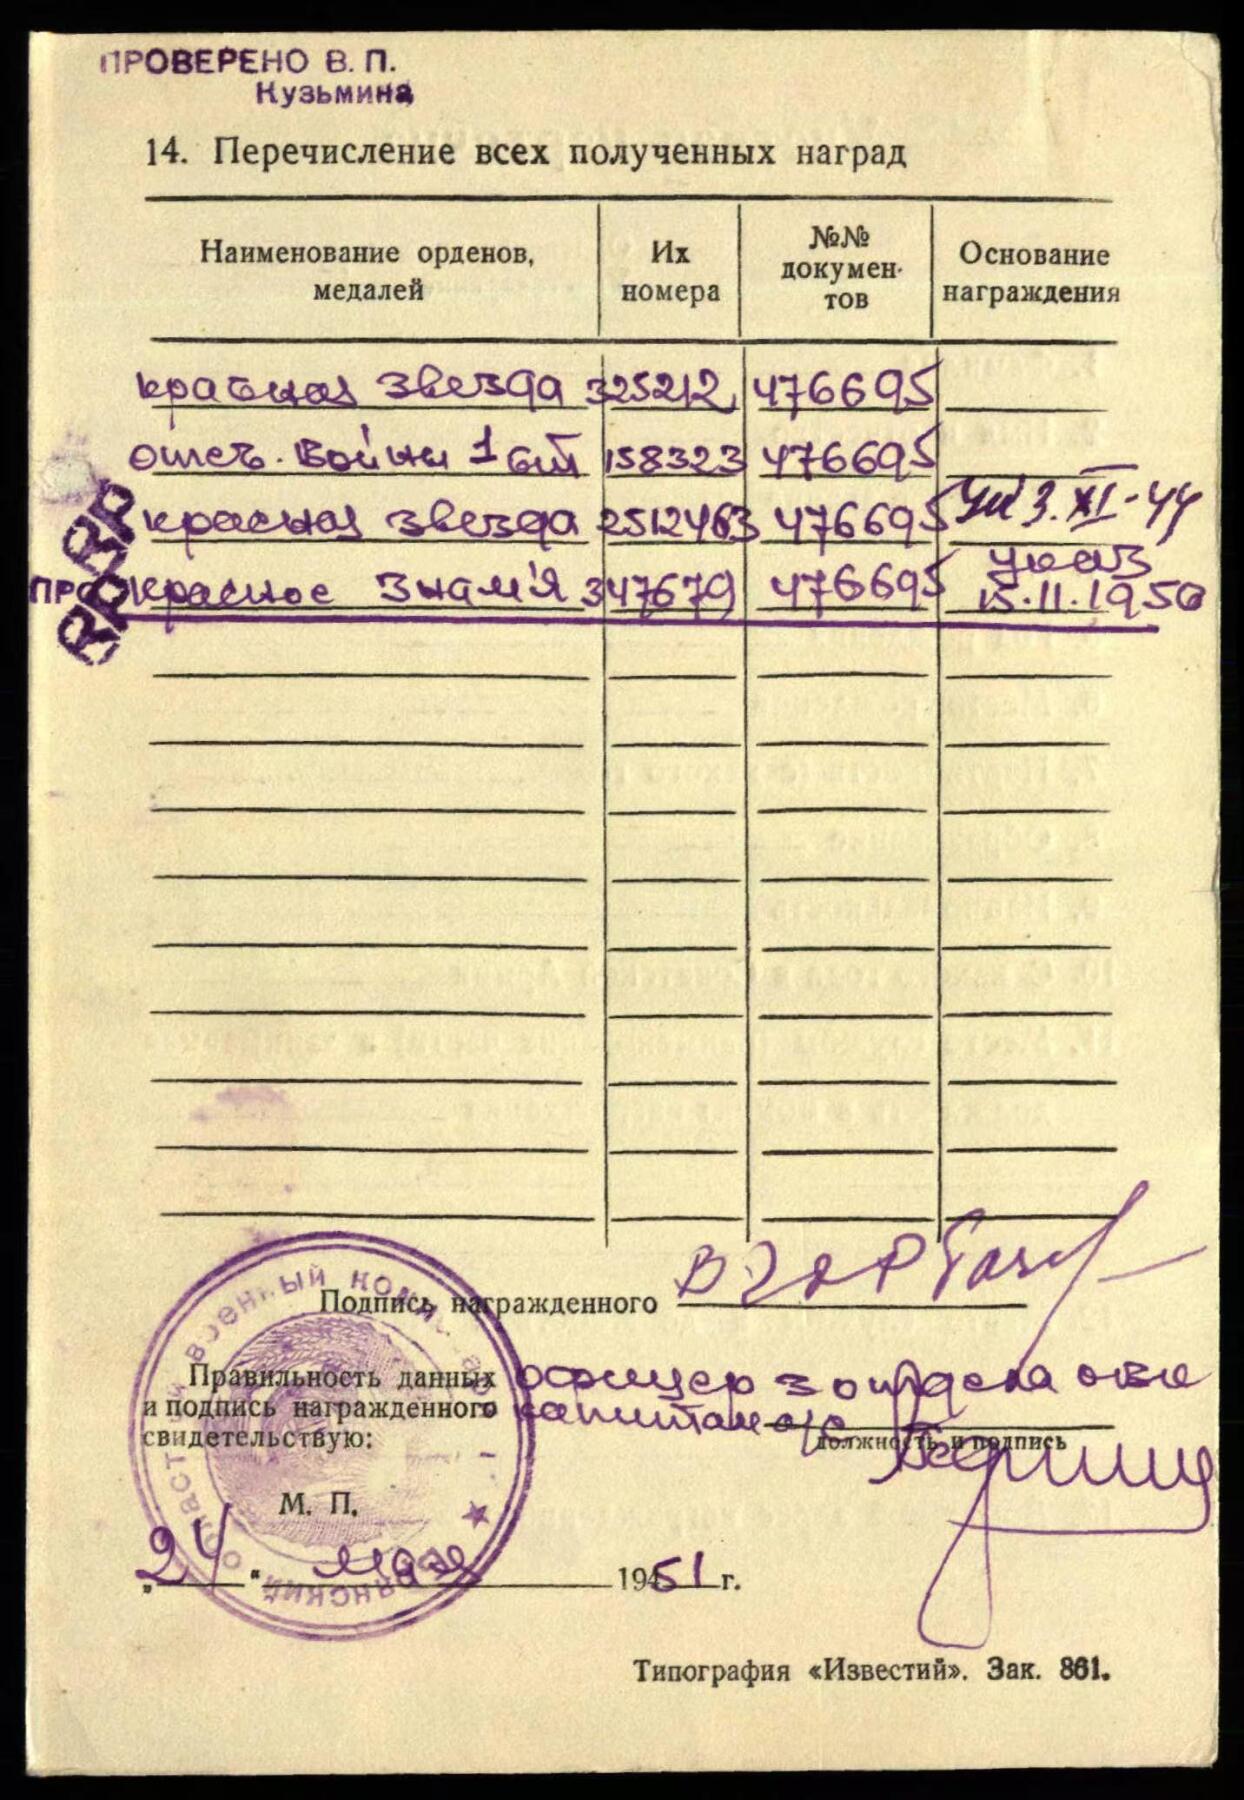 ПРОВЕРЕНО В. П.
Кузьмина
14. Перечисление всех полученных наград
Наименование орденов, медалей
Их номера
№№ докумен-тов
Основание награждения
красная звезда 325212 476695
отеч. войны 1 ст 158323 476695
красная звезда 2512463 476695 Ук 3.XI-44
красное знам'я 347679 476695 указ 15.11.1950
ПРО
Подпись награжденного
Правильность данных офицер 3 отдела ови
и подпись награжденного капитан а/с
свидетельствую:
должность и подпись
М. П.
„24" мая 1951 г.
БРЯНСКИЙ ОБЛАСТНОЙ ВОЕННЫЙ
Типография «Известий». Зак. 861.